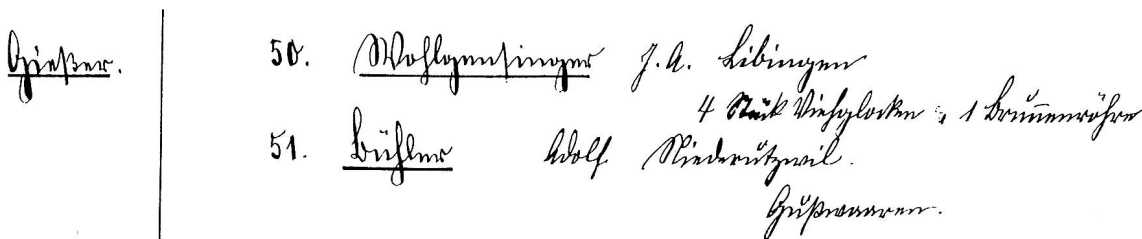 Gießer.
50. Wohlgensinger J. A. Libingen
4 Stück Viehglocken, 1 Brunnenröhre
51. Bühler Adolf Niederutzwil.
Gußwaaren.